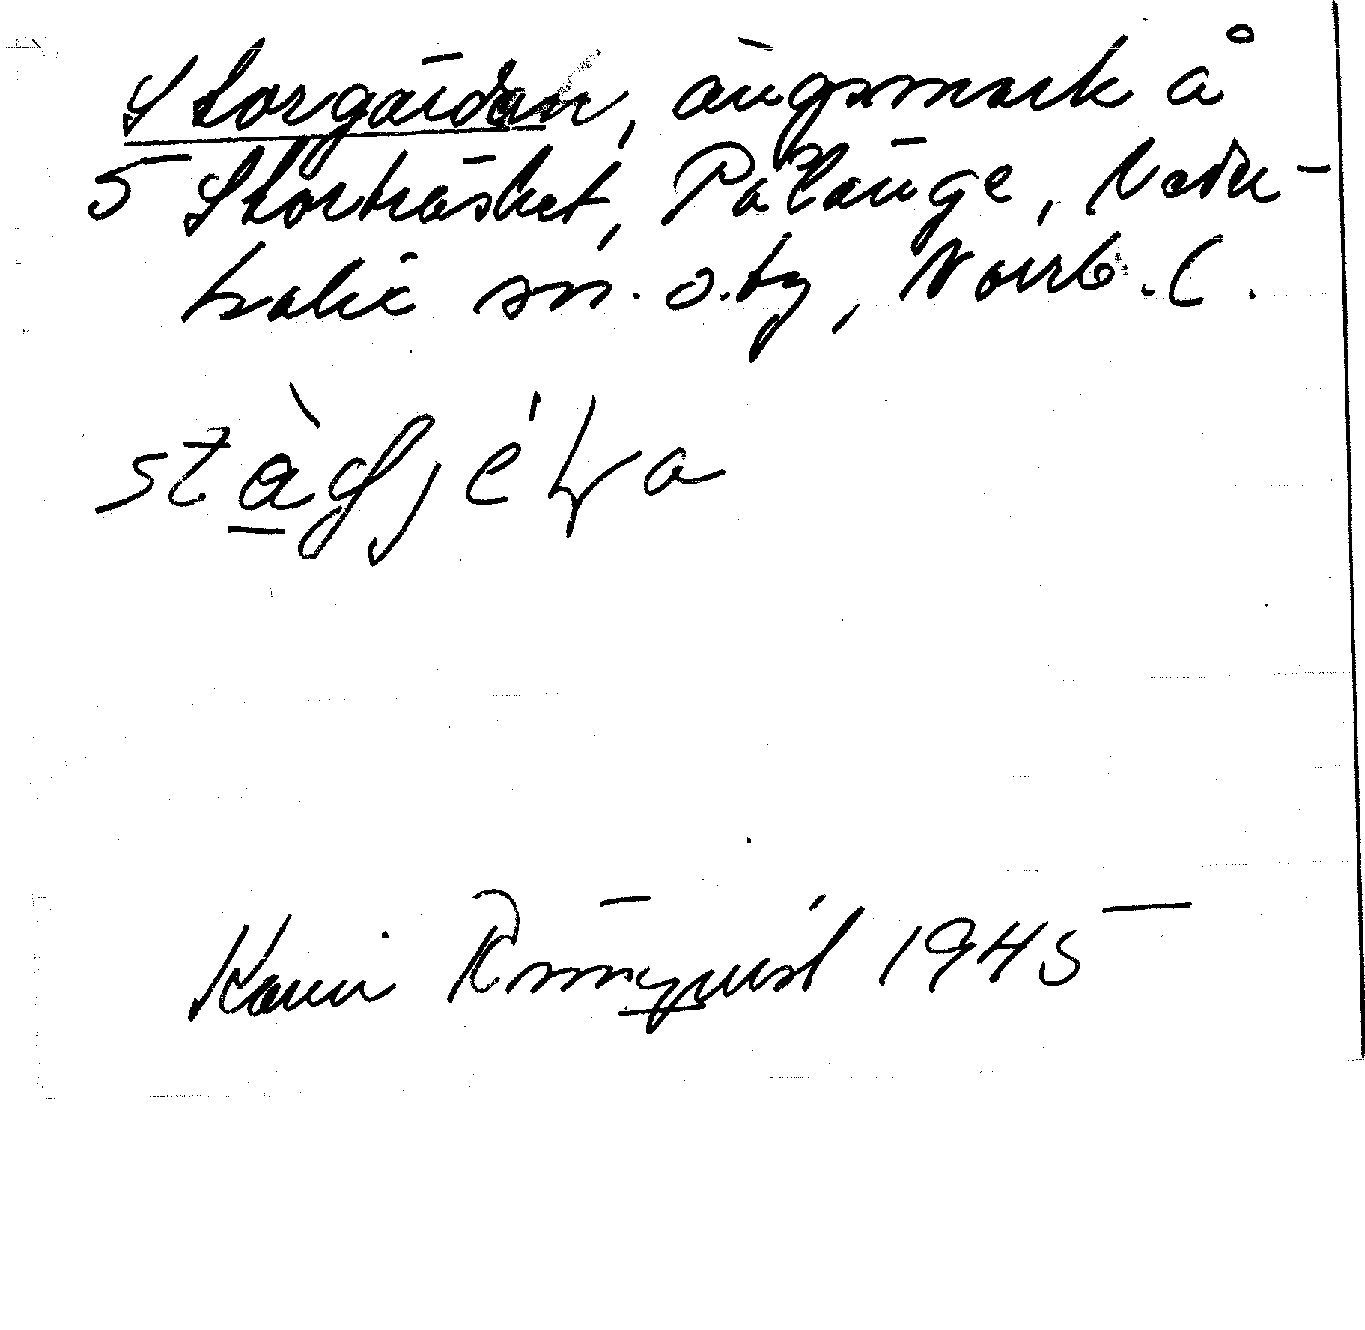 Storgärdan, ängsmark å
5 Storträsket, Pålänge, Neder-
kalix sn. o. by, Norrb. l.
Karin Rönnqvist 1945